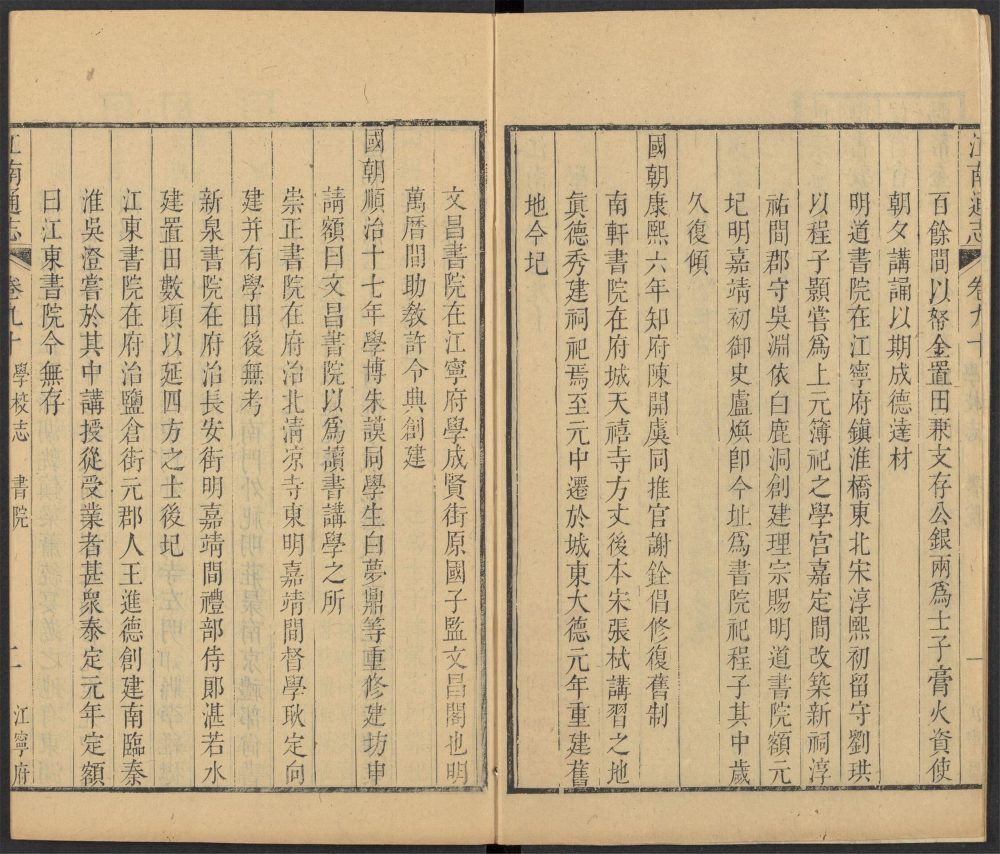 江南通志 卷九十 學校志 書院 一
百餘間以帑金置田兼支存公銀兩爲士子膏火資使
朝夕講誦以期成德達材
明道書院在江寧府鎮淮橋東北宋淳熙初留守劉珙
以程子顥嘗爲上元簿祀之學宮嘉定間改築新祠淳
祐間郡守吳淵依白鹿洞創建理宗賜明道書院額元
圮明嘉靖初御史盧煥卽今址爲書院祀程子其中歲
久復傾
國朝康熙六年知府陳開虞同推官謝銓倡修復舊制
南軒書院在府城天禧寺方丈後本宋張栻講習之地
眞德秀建祠祀焉至元中遷於城東大德元年重建舊
地今圮
文昌書院在江寧府學成賢街原國子監文昌閣也明
萬曆間助敎許令典創建
國朝順治十七年學博朱謨同學生白夢鼎等重修建坊申
請額曰文昌書院以爲讀書講學之所
崇正書院在府治北淸凉寺東明嘉靖間督學耿定向
建并有學田後無考
新泉書院在府治長安街明嘉靖間禮部侍郎湛若水
建置田數項以延四方之士後圮
江東書院在府治鹽倉街元郡人王進德創建南臨秦
淮吳澄嘗於其中講授從受業者甚衆泰定元年定額
曰江東書院今無存
江南通志 卷九十 學校志 書院 二 江寧府